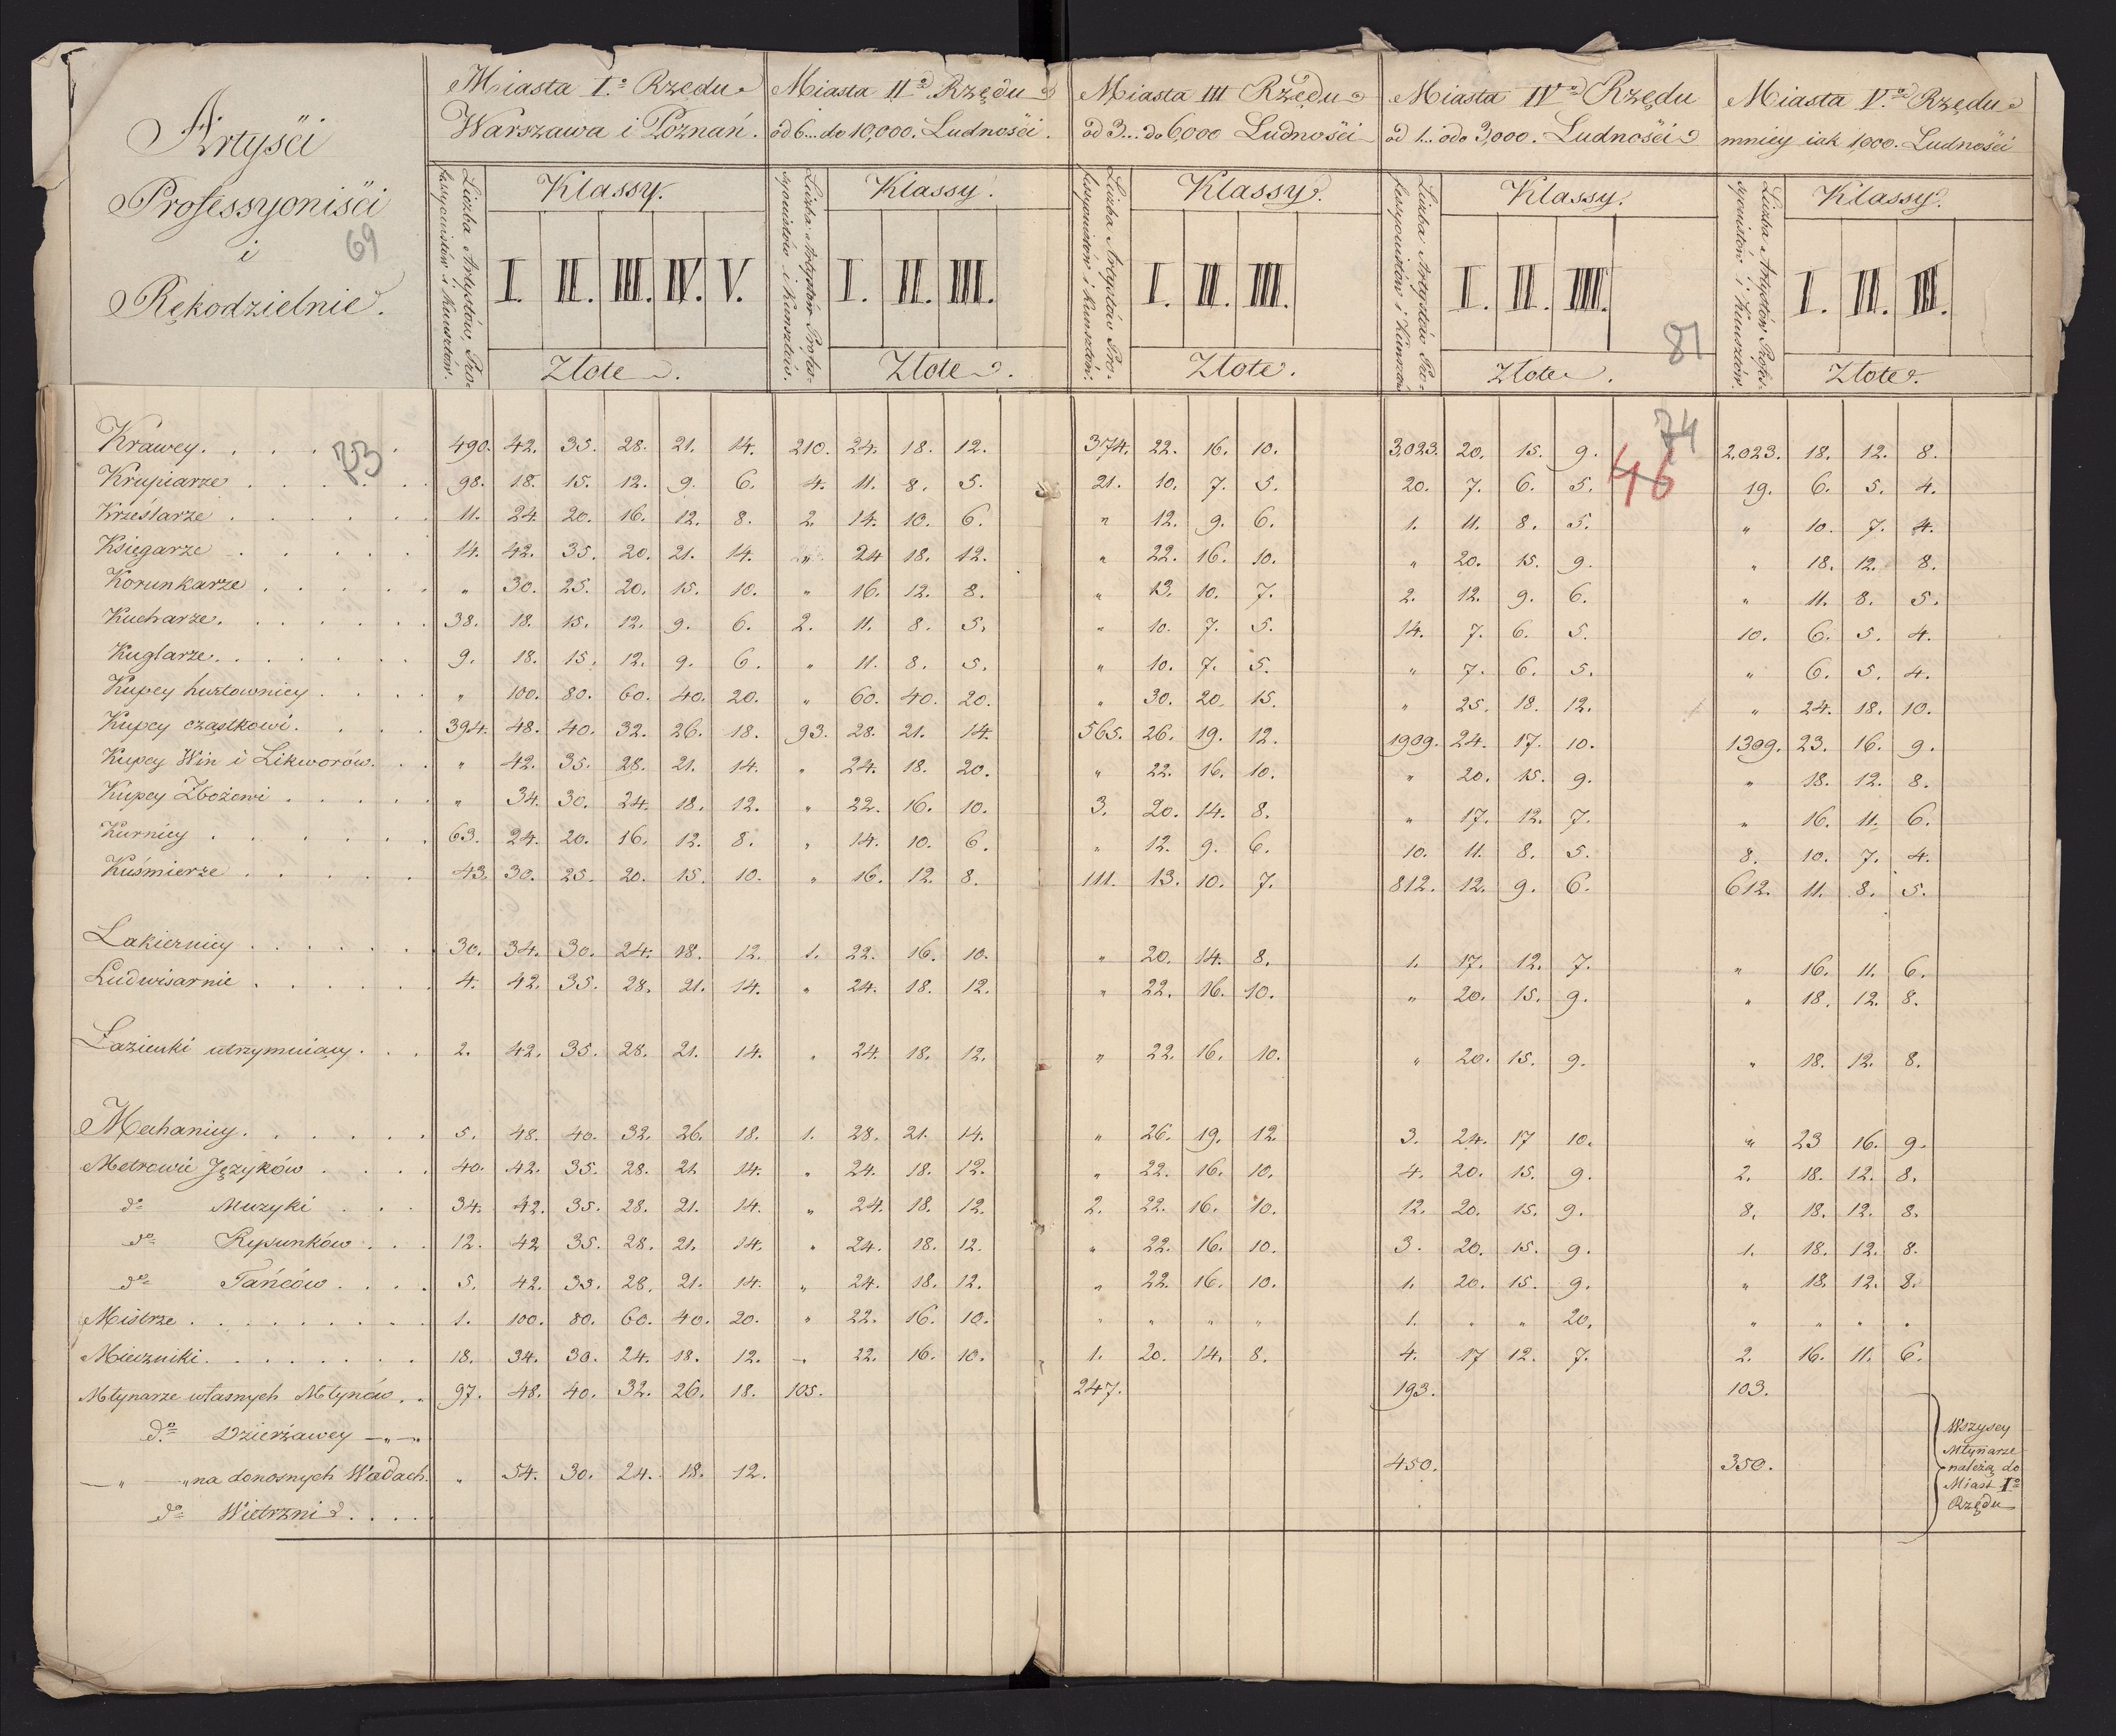 Artyści
Professyoniści
i
Rękodzielnie.
69
Miasta I.º Rzędu
Warszawa i Poznań.
Miasta IIº Rzędu
od 6... do 10,000. Ludności.
Miasta III Rzędu
od 3... do 6,000 Ludności
Miasta IVº Rzędu
od 1... do 3,000. Ludności
Miasta V.º Rzędu
mniey iak 1,000. Ludności
Liczba Artystów, Professyonistów i Kunsztów.
Klassy.
I. II. III. IV. V.
Złote.
Liczba Artystów Professyonistów i Kunsztów.
Klassy.
I. II. III.
Złote.
Liczba Artystów Professyonistów i Kunsztów.
Klassy.
I. II. III.
Złote.
Liczba Artystów Professyonistów i Kunsztów
Klassy.
I. II. III.
81
Złote.
Liczba Artystów Professyonistów i Kunsztów.
Klassy.
I. II. III.
Złote.
73
74
46
Krawcy. 490. 42. 35. 28. 21. 14. 210. 24. 18. 12. 374. 22. 16. 10. 3,023. 20. 15. 9. 2,023. 18. 12. 8.
Krupiarze 98. 18. 15. 12. 9. 6. 4. 11. 8. 5. 21. 10. 7. 5. 20. 7. 6. 5. 19. 6. 5. 4.
Krześlarze 11. 24. 20. 16. 12. 8. 2. 14. 10. 6. " 12. 9. 6. 1. 11. 8. 5. " 10. 7. 4.
Księgarze 14. 42. 35. 20. 21. 14. " 24 18. 12. " 22. 16. 10. " 20. 15. 9. " 18. 12. 8.
Korunkarze " 30. 25. 20. 15. 10. " 16. 12. 8. " 13. 10. 7. 2. 12. 9. 6. " 11. 8. 5.
Kucharze. 38. 18. 15. 12. 9. 6. 2. 11. 8. 5. " 10. 7. 5. 14. 7. 6. 5. 10. 6. 5. 4.
Kuglarze. 9. 18. 15. 12. 9. 6. " 11. 8. 5. " 10. 7. 5. " 7. 6. 5. " 6. 5. 4.
Kupcy hurtownicy " 100. 80. 60. 40. 20. " 60. 40. 20. " 30. 20. 15. " 25. 18. 12. " 24. 18. 10.
Kupcy cząstkowi. 394. 48. 40. 32. 26. 18. 93. 28. 21. 14. 565. 26. 19. 12. 1909. 24. 17. 10. 1309. 23. 16. 9.
Kupcy Win i Likworów. " 42. 35. 28. 21. 14. " 24. 18. 20. " 22. 16. 10. " 20. 15. 9. " 18. 12. 8.
Kupcy Zbożowi " 34. 30. 24. 18. 12. " 22. 16. 10. 3. 20. 14. 8. " 17. 12. 7. " 16. 11. 6.
Kurnicy 63. 24. 20. 16. 12. 8. " 14. 10. 6. " 12. 9. 6. 10. 11. 8. 5. 8. 10. 7. 4.
Kuśmierze 43. 30. 25. 20. 15. 10. " 16. 12. 8. 111. 13. 10. 7. 812. 12. 9. 6. 612. 11. 8. 5.
Lakiernicy 30. 34. 30. 24. 18. 12. 1. 22. 16. 10. " 20. 14. 8. 1. 17. 12. 7. " 16. 11. 6.
Ludwisarnie 4. 42. 35. 28. 21. 14. " 24. 18. 12. " 22. 16. 10. " 20. 15. 9. " 18. 12. 8.
Łazienki utrzymuiący. 2. 42. 35. 28. 21. 14. " 24. 18. 12. " 22. 16. 10. " 20. 15. 9. " 18. 12. 8.
Mechanicy. 5. 48. 40. 32. 26. 18. 1. 28. 21. 14. " 26. 19. 12 3. 24. 17 10. " 23 16. 9.
Metrowie Języków 40. 42. 35. 28. 21 14. " 24. 18. 12. " 22. 16. 10. 4. 20. 15. 9. 2. 18. 12. 8.
dº Muzyki 34. 42. 35. 28. 21. 14. " 24. 18. 12. 2. 22. 16. 10. 12. 20. 15. 9. 8. 18. 12. 8.
dº Rysunków 12. 42 35. 28. 21. 14. " 24. 18. 12. " 22. 16. 10. 3. 20. 15. 9. 1. 18. 12. 8.
dº Tańców 5. 42. 35. 28. 21. 14. " 24. 18. 12. " 22. 16. 10. 1. 20. 15. 9. " 18. 12. 8.
Mistrze 1. 100. 80. 60. 40. 20. " 22. 16. 10. " " " " 1. " " 20. " " " "
Mieczniki. 18. 34. 30. 24. 18. 12. " 22. 16. 10. 1. 20. 14. 8. 4. 17 12. 7. 2. 16. 11. 6.
Młynarze własnych Młynów 97. 48. 40. 32. 26. 18. 105. 247. 193. 103.
dº Dzierżawcy — " —
— " — " na donosnych Wodach. " 54. 30. 24. 18. 12. 450. 350.
dº Wietrzni
Wszyscy
Młynarze
należą do
Miast Iº
Rzędu